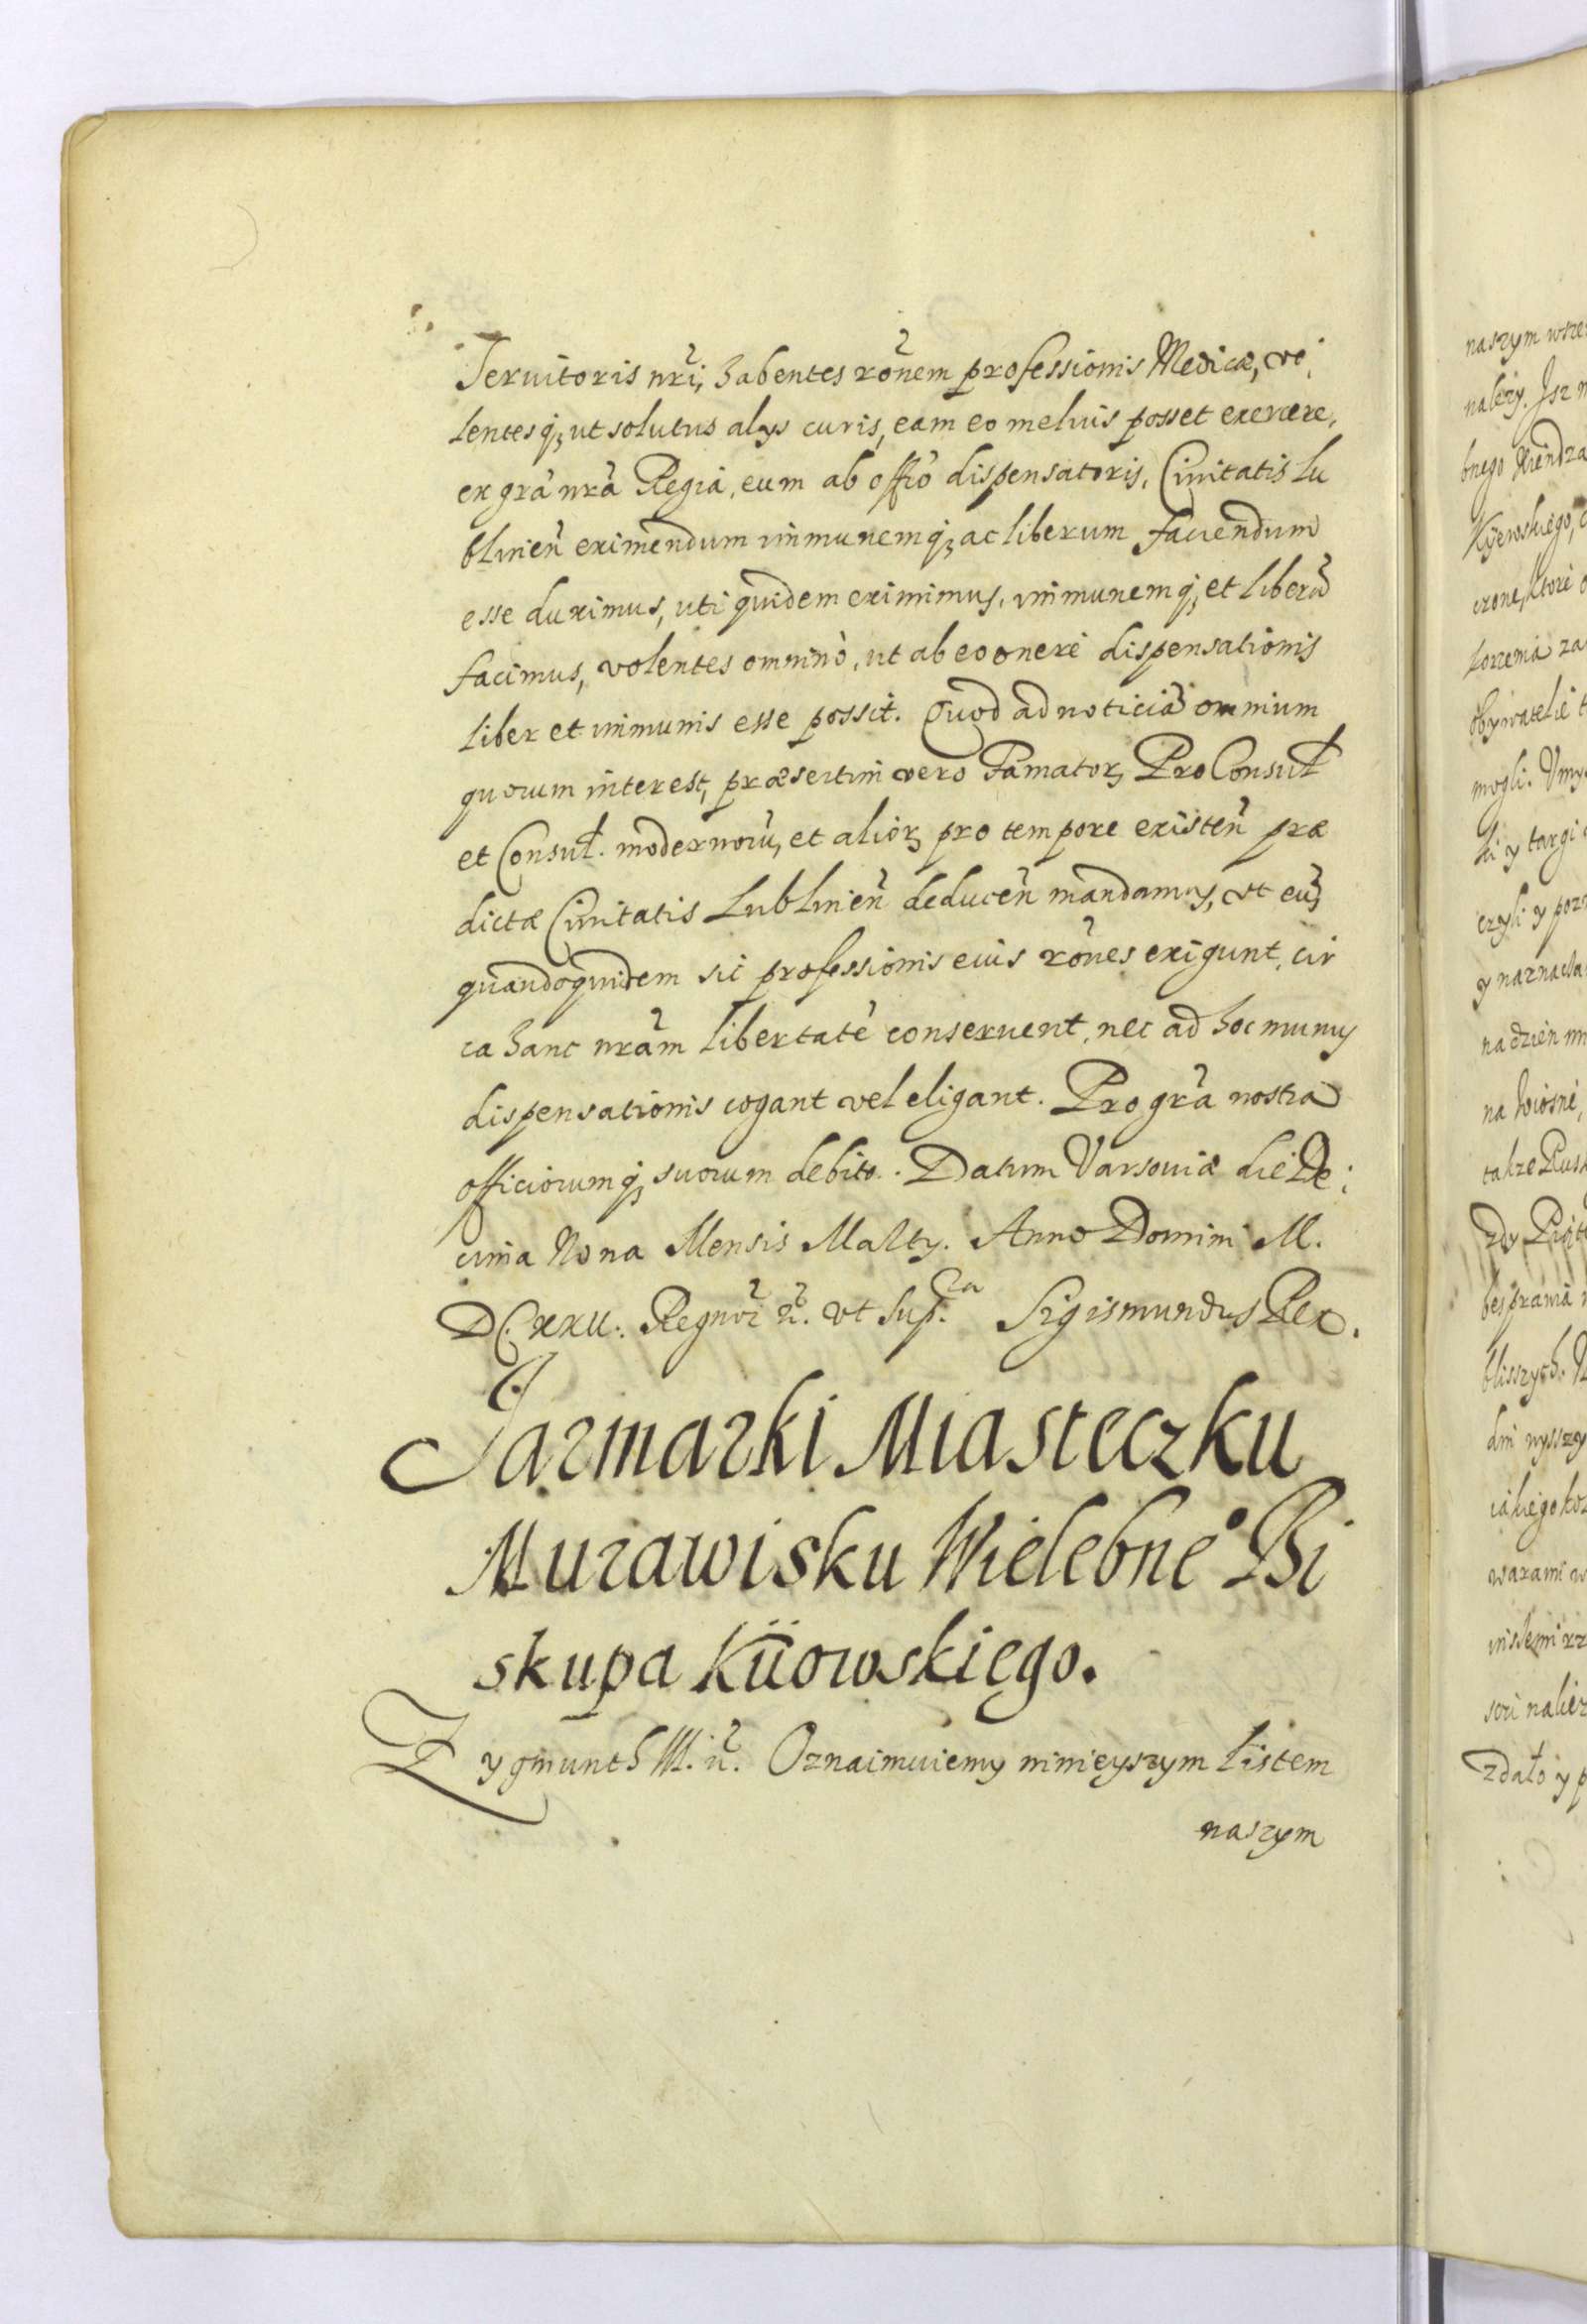 Seruitoris nr̃i, habentes rõnem professionis Medicæ, ve,
lentesq́ȝ ut solutus alys curis, eam eo melius posset exercere,
ex grã nrã Regia, eum ab offió dispensatoris, Ciuitatis Lu
blineñ eximendum immunemq́ȝ ac liberum faciendum
esse duximus, uti quidem eximimus, immunemq́ȝ et liberũ
facimus, volentes omninò, ut ab eo onere dispensationis
liber et immunis esse possit. Quod ad noticiã omnium
quorum interest, præsertim vero Famatorȝ ProConsul
et Consul. modernorũ, et aliorȝ pro tempore existeñ præ
dictæ Ciuitatis Lublineñ deduceñ mandamus, vt eũȝ
quandoquidem sic professionis eius rõnes exigunt, cir
ca hanc nrãm libertatẽ conseruent, nec ad hoc munus
dispensationis cogant vel eligant. Pro grã nostra
officiorumq́ȝ suorum debito. Datum Varsouiæ die De,
cima Nona Mensis MaRty. Anno Domini M.
DC.XXII. Regnor̃ ñ. vt Sup.ra Sigismundus Rex.
Jarmarki Miasteczku
Murawisku Wielebneº Bi
skupa Kiiowskiego.
Zygmunth III. ñ. Oznaimuiemy ninieyszym Listem
naszym
naszym wsze
należy. Isz n
bnego Xiendza
Kijewskiego,
czone, ktore
korzenia za
obywatelie t
mogli. Vmy
ki y targi
czyli y poz
y naznacza
na dzien
na Wiosnę,
takze Rusk
bes prawa
blisszych. N
dni wysszy
iakiego ko
warami w
sci nalez
zdało y p